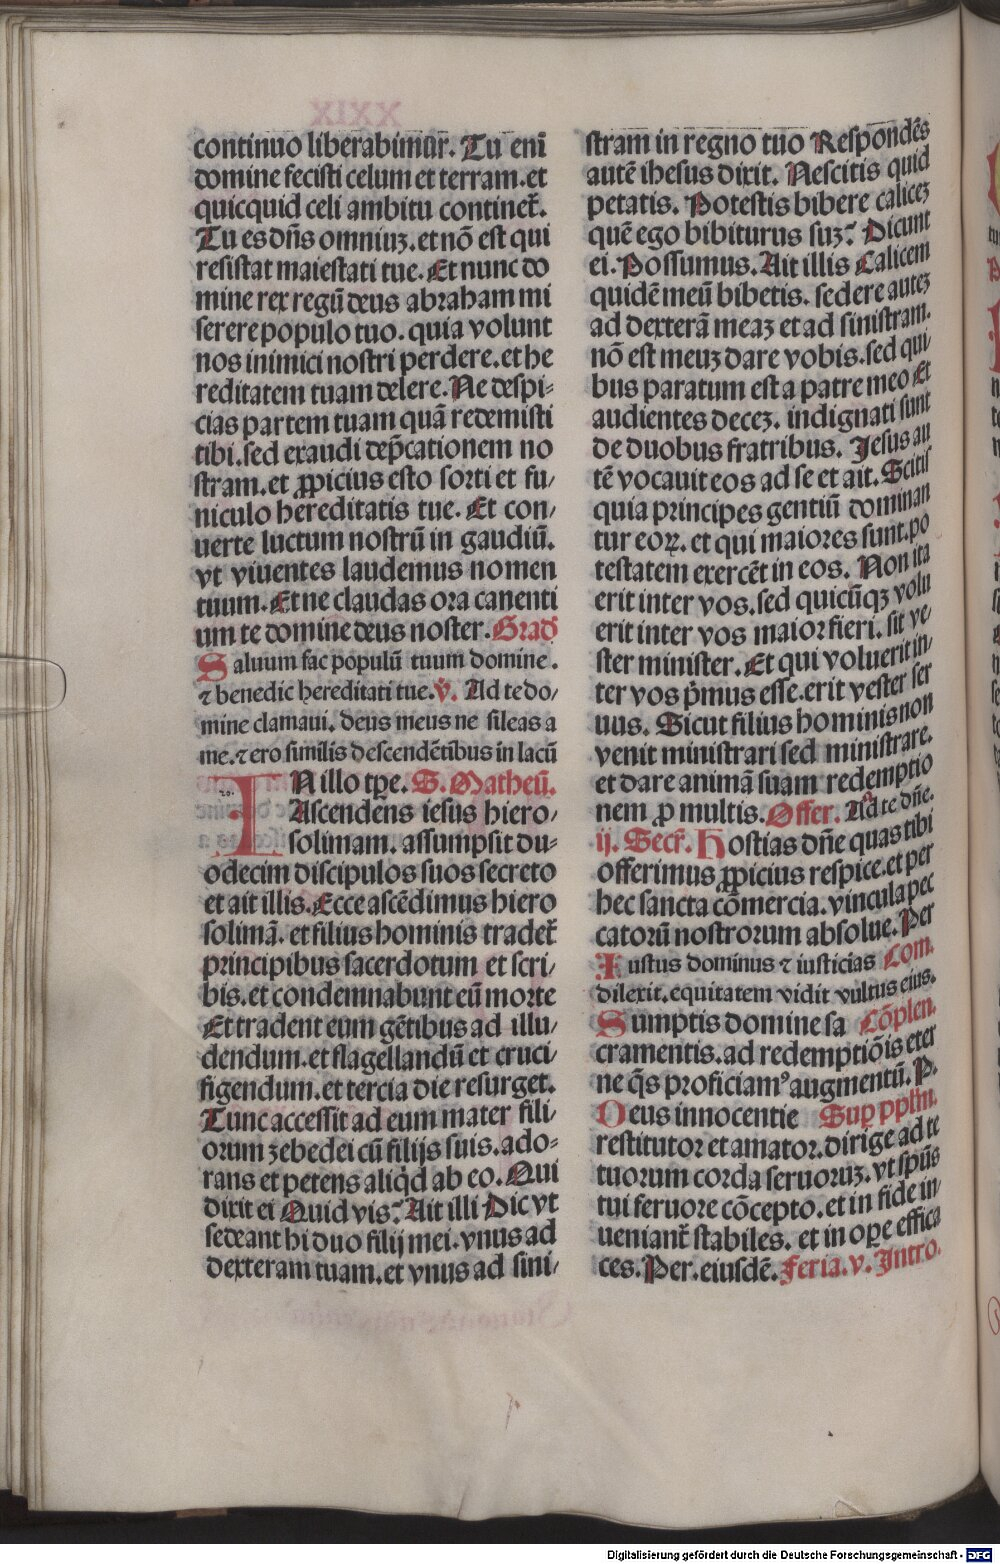 continuo liberabimur̄. Tu eni᷑
domine fecisti celum et terram. et
quicquid celi ambitu continet᷑.
Tu es dn̄s omniuꝫ. et nō est qui
resistat maiestati tue. Et nunc do
mine rex regū deus abraham mi
serere populo tuo. quia volunt
nos inimici nostri perdere. et he
reditatem tuam delere. Ne despi⸗
cias partem tuam quā redemisti
tibi. sed exaudi dep̄cationem no
stram. et ꝓpicius esto sorti et fu/
niculo hereditatis tue. Et con/
uerte luctum nostrū in gaudiū.
vt viuentes laudemus nomen
tuum. Et ne claudas ora canenti
um te domine deus noster. Grad᷑
Saluum fac populū tuum domine.
⁊ benedic hereditati tue. v̄. Ad te do/
mine clamaui. deus meus ne sileas a
me. ⁊ ero similis descendētibus in lacū
IN illo tꝑe. S. Matheū.
Ascendens iesus hiero/
solimam. assumpsit du⸗
odecim discipulos suos secreto
et ait illis. Ecce ascēdimus hiero
solimā. et filius hominis tradet᷑
principibus sacerdotum et scri/
bis. et condemnabunt eū morte
Et tradent eum gētibus ad illu/
dendum. et flagellandū et cruci/
figendum. et tercia die resurget.
Tunc accessit ad eum mater fili/
orum zebedei cū filijs suis. ado⸗
rans et petens aliqͥd ab eo. Qui
dixit ei Quid vis? Ait illi Dic vt
sedeant hi duo filij mei. vnus ad
dexteram tuam. et vnus ad sini/
stram in regno tuo Respondēs
autē ihesus dixit. Nescitis quid
petatis. Potestis bibere caliceꝫ
quē ego bibiturus suꝫ? Dicunt
ei. Possumus. Ait illis Calicem
quidē meū bibetis. sedere auteꝫ
ad dexterā meaꝫ et ad sinistram.
nō est meuꝫ dare vobis. sed qui/
bus paratum est a patre meo Et
audientes deceꝫ. indignati sunt
de duobus fratribus. Jesus au
tē vocauit eos ad se et ait. Scitis
quia principes gentiū dominan
tur eoꝝ. et qui maiores sunt. po
testatem exercēt in eos. Non ita
erit inter vos. sed quicūqꝫ volu
erit inter vos maior fieri. sit ve/
ster minister. Et qui voluerit in/
ter vos pͥmus esse. erit vester ser
uus. Sicut filius hominis non
venit ministrari sed ministrare.
et dare animā suam redemptio
nem ꝓ multis. Offer. Ad te dn̄e.
ij. Secr᷑. Hostias dn̄e quas tibi
offerimus ꝓpicius respice. et per
hec sancta cōmercia. vincula pec
catorū nostrorum absolue. Per
Iustus dominus ⁊ iusticias Com.
dilexit. equitatem vidit vultus eius.
Sumptis domine sa Cōplen.
cramentis. ad redemptiōis eter
ne q̄s proficiamꝰ augmentū. P.
Deus innocentie Suꝑ pplm̄.
restitutor et amator. dirige ad te
tuorum corda seruoruꝫ. vt spūs
tui feruore cōcepto. et in fide in/
ueniant᷑ stabiles. et in oꝑe effica
ces. Per. eiusdē. Feria. v. Intro.
Digitalisierung gefördert durch die Deutsche Forschungsgemeinschaft - DFG